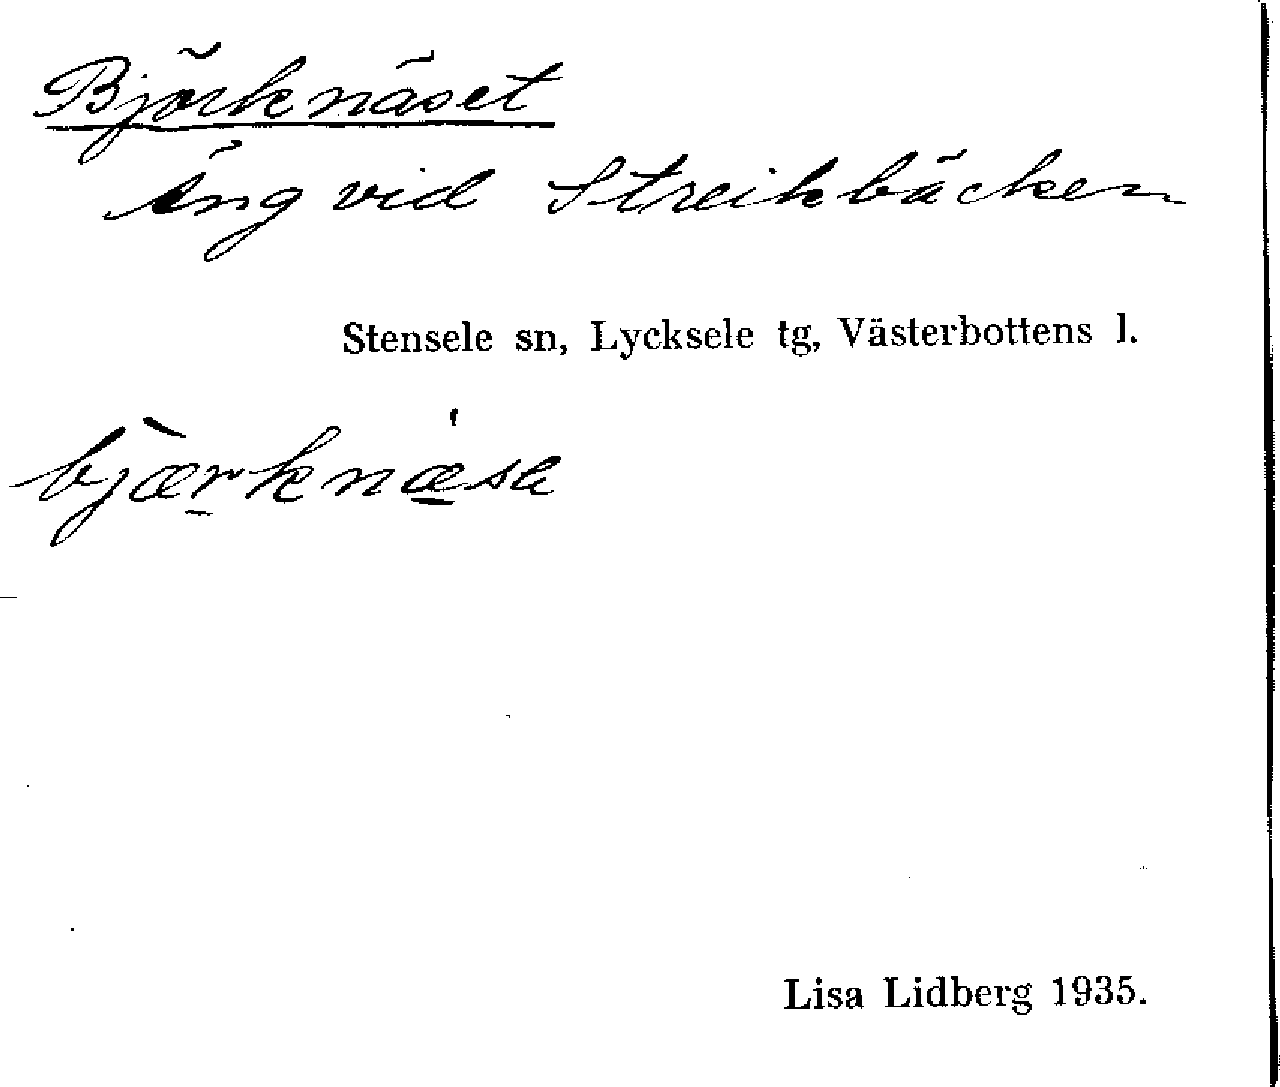 Björknäset
Äng vid Streikbäcken
Stensele sn, Lycksele tg, Västerbottens l.
bjæ̀rknæ̲se
Lisa Lidberg 1935.